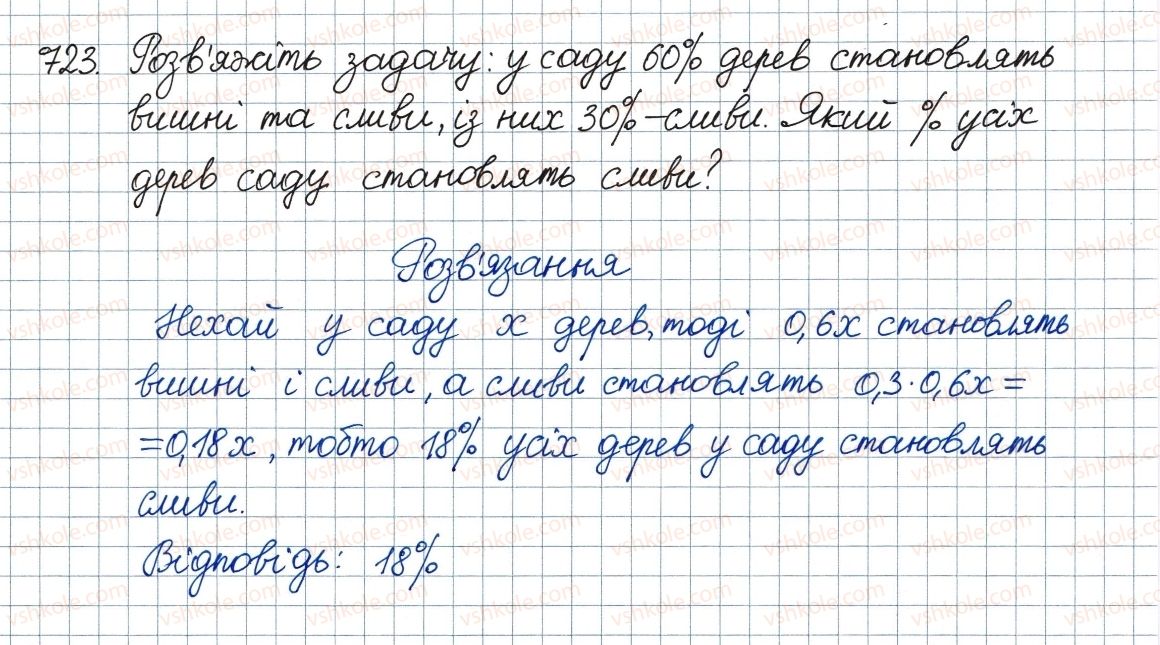 723. Розв'яжіть задачу: у саду 60% дерев становлять
вишні та сливи, із них 30% – сливи. Який % усіх
дерев саду становлять сливи?
Розв'язання
Нехай у саду x дерев, тоді 0,6x становлять
вишні і сливи, а сливи становлять 0,3·0,6x =
=0,18x, тобто 18% усіх дерев у саду становлять
сливи.
Відповідь: 18%